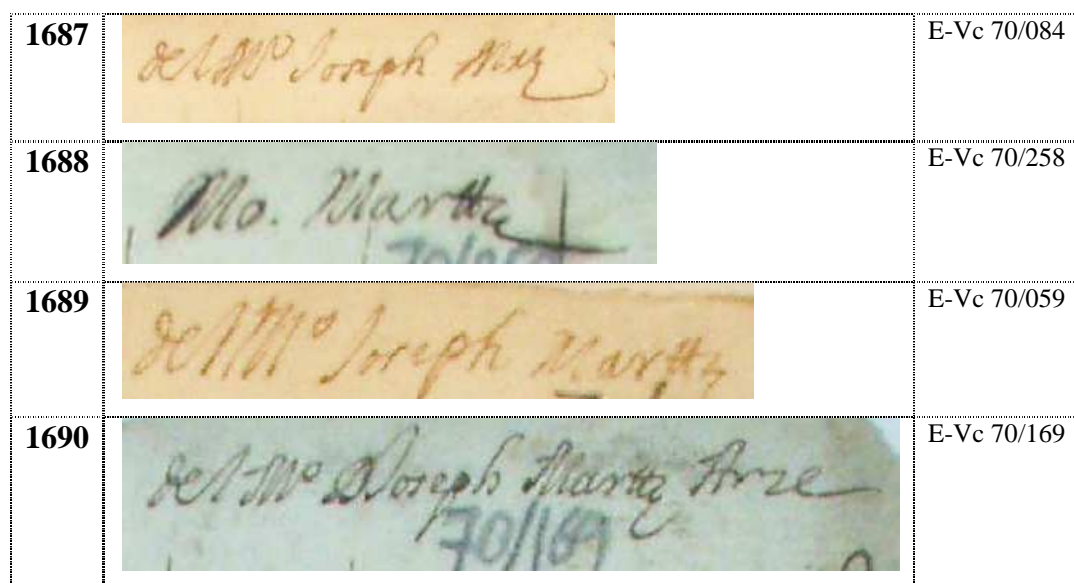 1687 del Mº Joseph Mrz E-Vc 70/084
1688 Mo. Marttz E-Vc 70/258
70/258
1689 del Mº Joseph Marttz E-Vc 70/059
1690 del Mº D Joseph Marttz Arze E-Vc 70/169
70/169